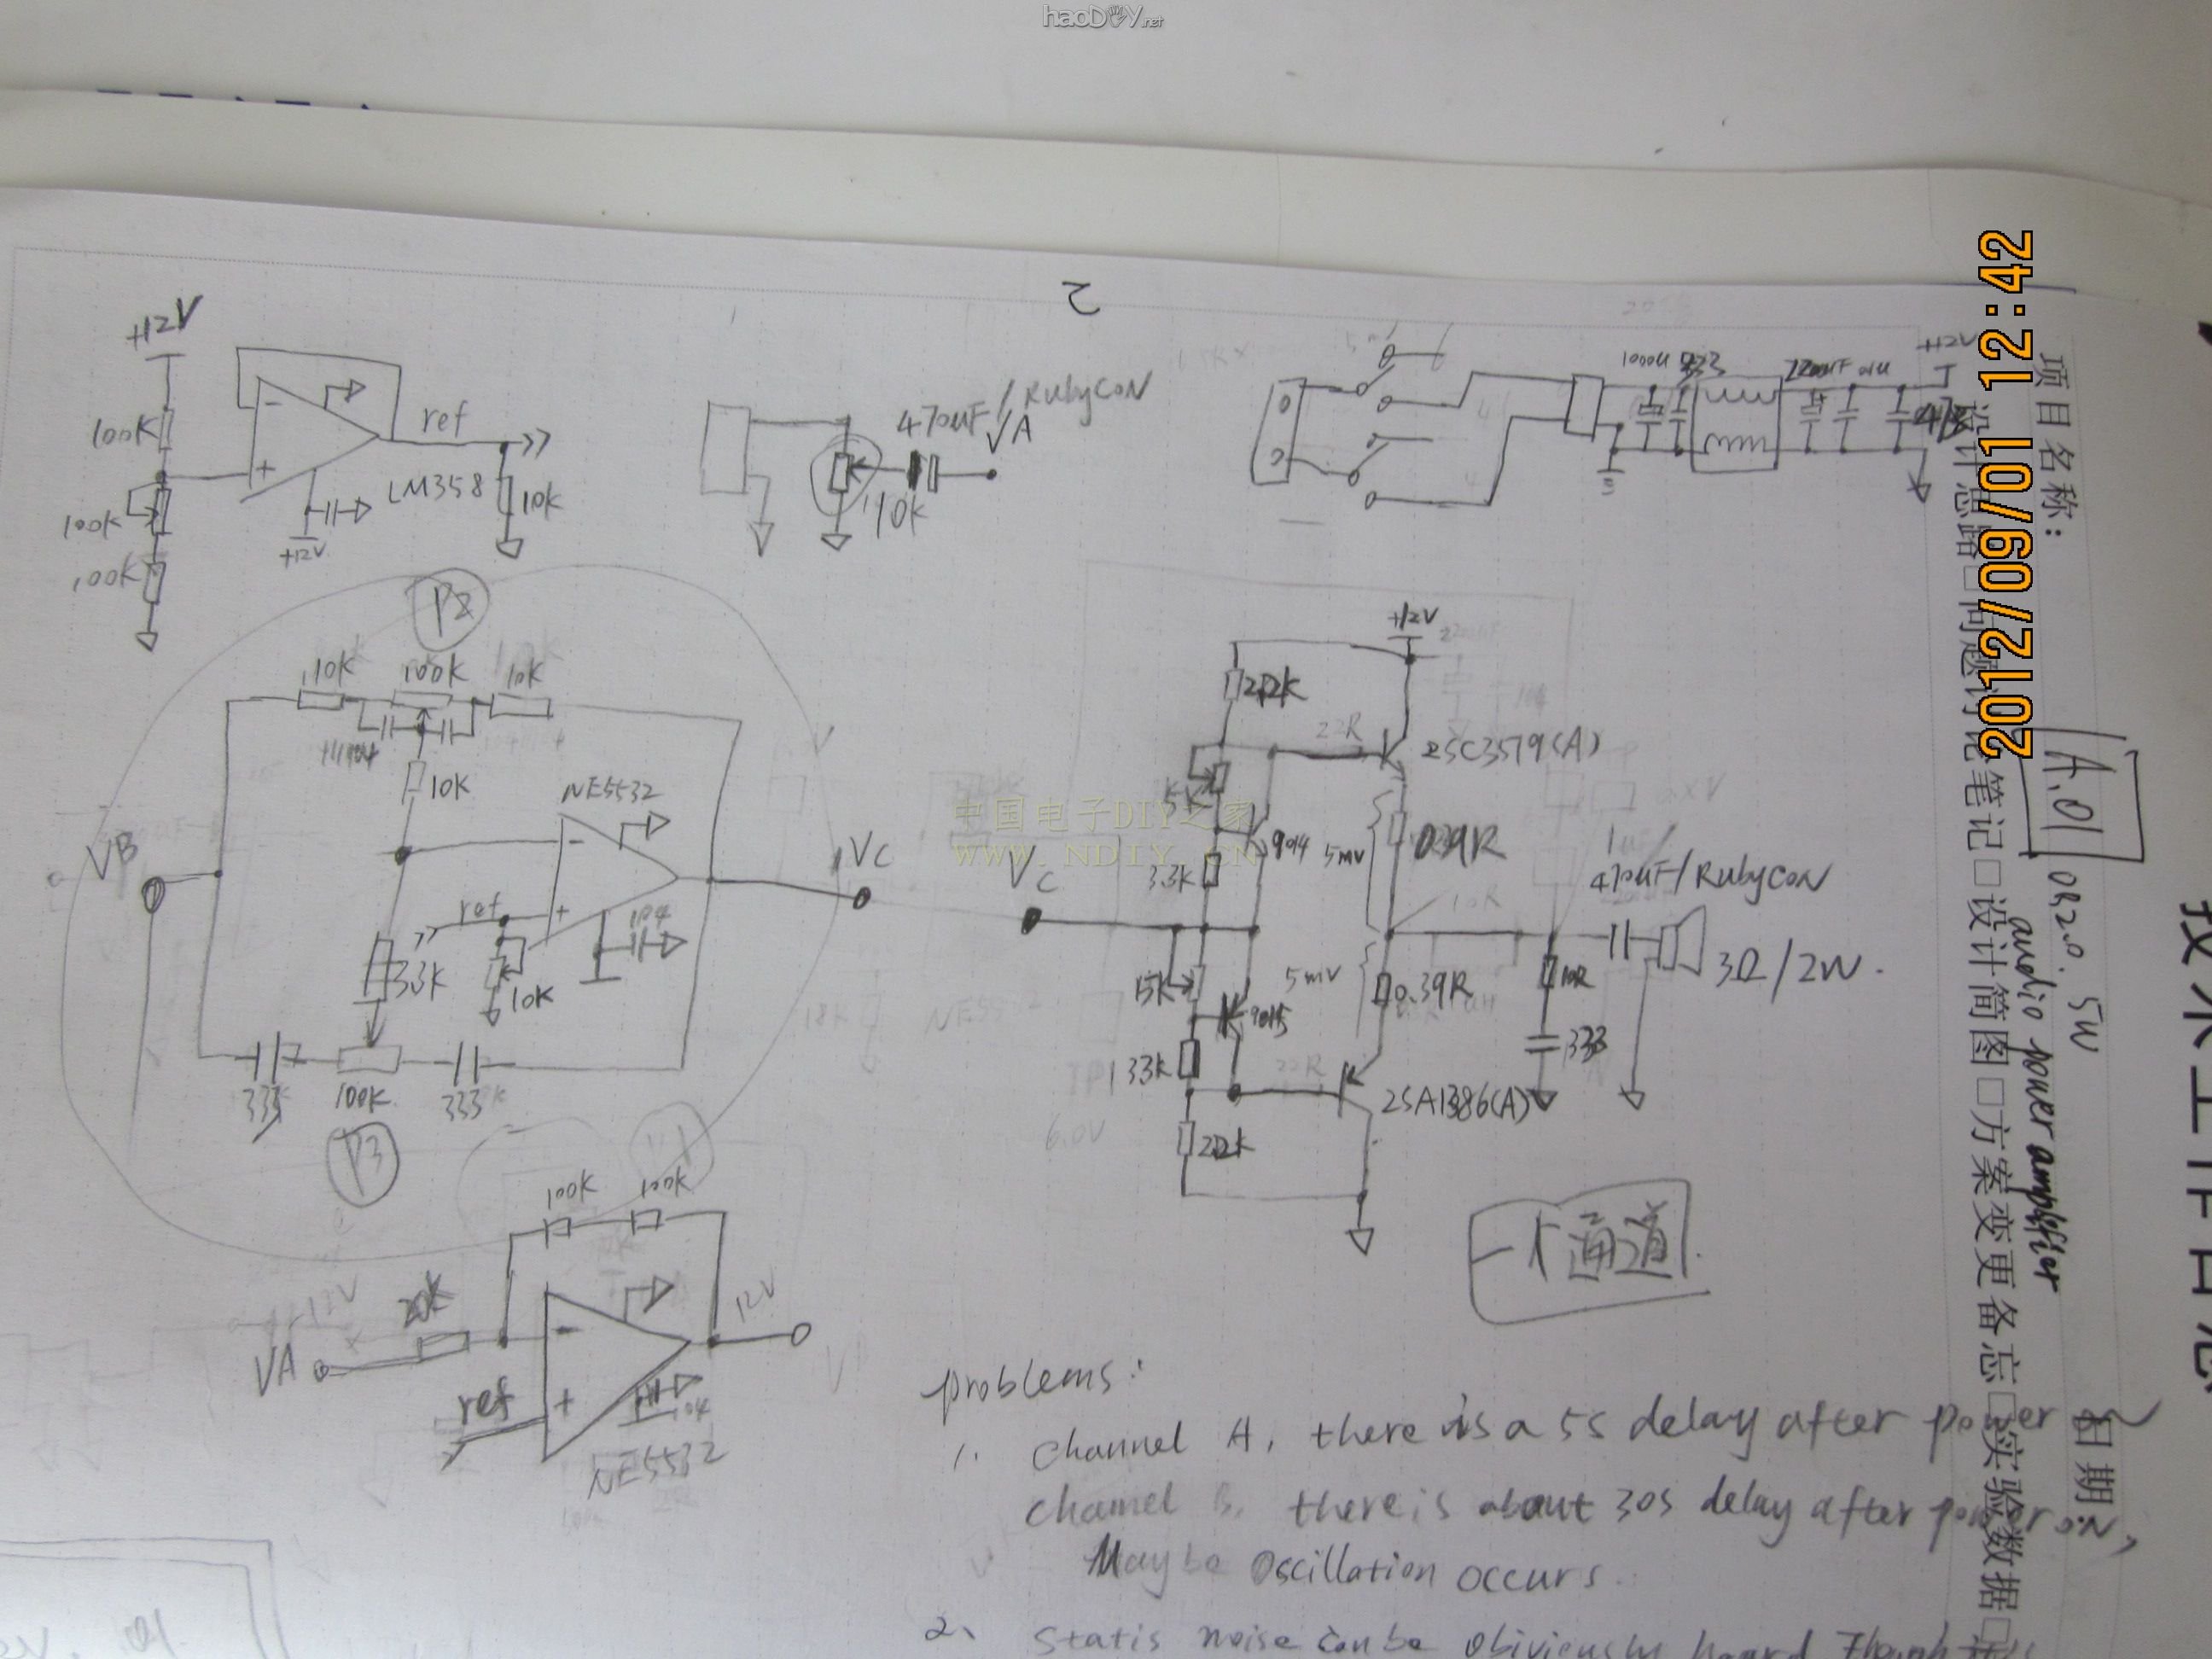 haoDIY.net
2
+12V
100K
100K
100K
ref
LM358
10K
+12V
470UF/RUbyCON
VA
10K
1000U
+12V
P2
10K
100K
10K
10K
NE5532
VB
VC
ref
104
3.3K
10K
333
100K
333
P3
100K
100K
20K
VA
12V
ref
104
NE5532
+12V
2.2K
22R
2SC3579(A)
5K
9014
5mV
0.39R
3.3K
VC
10R
470UF/RUbyCON
3Ω/2W.
15K
5mV
0.39R
10R
9015
333
33K
22R
2SA1386(A)
2.2K
6.0V
18K
NE5532
一个通道.
中国电子DIY之家
www.NDIY.CN
problems:
1. Channel A, there is a 5s delay after power
Channel B, there is about 30s delay after power ON,
Maybe Oscillation occurs.
2、 Statis noise can be obiviously heard Though
2012/09/01 12:42
项目名称:
A.01
082.0. 5W
audio power amplifier
设计思路□问题讨论笔记□设计简图□方案变更备忘□实验数据□
日期